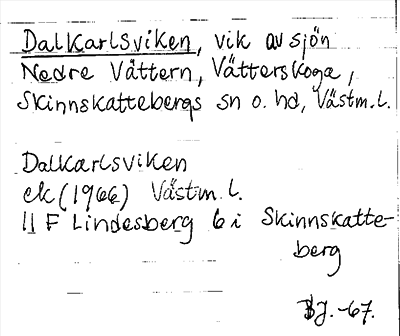 Dalkarlsviken, vik av sjön
Nedre Vättern, Vätterskoga,
Skinnskattebergs sn o. hd, Västm.l.
Dalkarlsviken
ek (1966) Västm. l.
11 F Lindesberg 6 i Skinnskatte-
berg
BJ.-67.